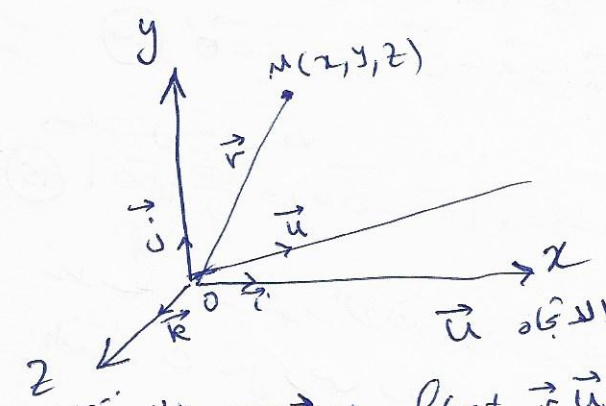 y
M(x,y,z)
r⃗
j⃗
u⃗
x
O i⃗
k⃗
الاتجاه u⃗
z
u⃗